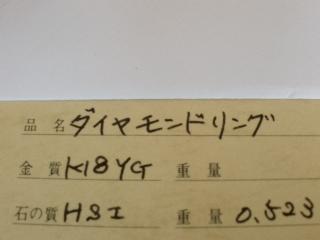 品名 ダイヤモンドリング
金質 K18YG 重量
石の質 HSI 重量 0.523